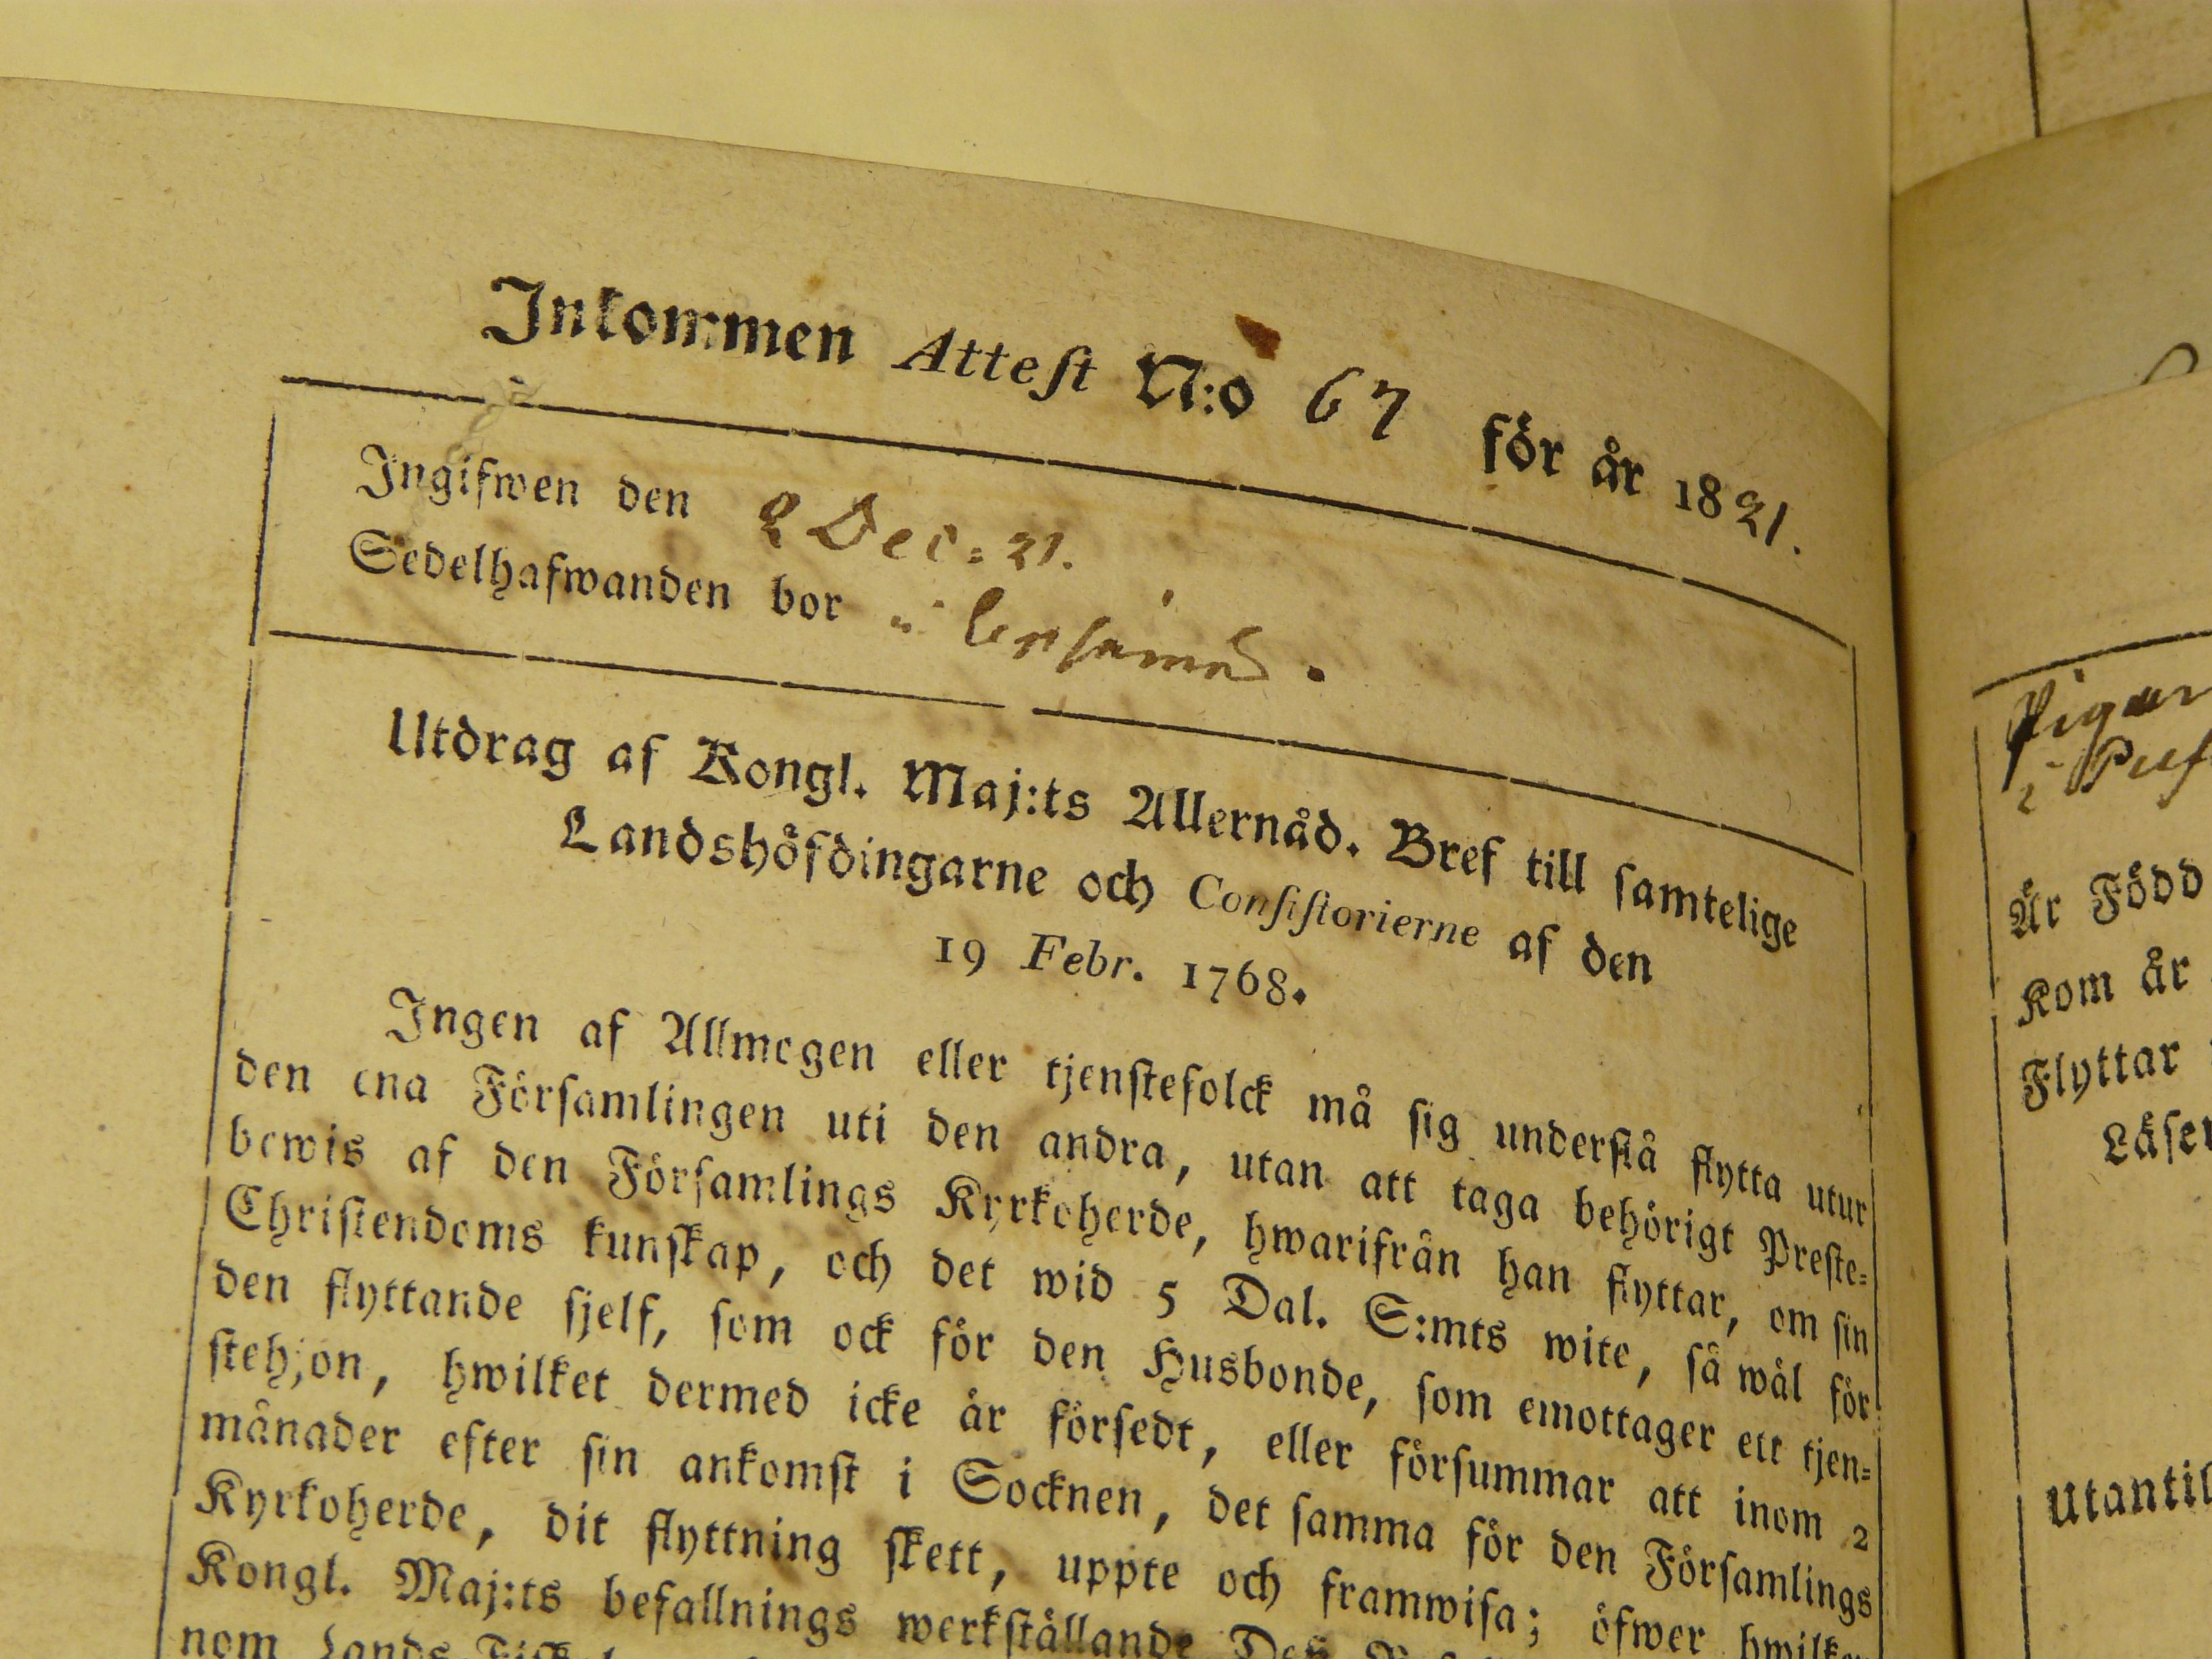 Inkommen Attest N:o 67 för år 1821.
Ingifwen den 2 Dec: 21.
Sedelhafwanden bor i
Utdrag af Kongl. Maj:ts Allernåd. Bref till samtelige
Landshöfdingarne och Consistorierne af den
19 Febr. 1768.
Ingen af Allmogen eller tjenstefolck må sig understå flytta utur
den ena Församlingen uti den andra, utan att taga behörigt Preste-
bewis af den Församlings Kyrkoherde, hwarifrån han flyttar, om sin
Christendoms kunskap, och det wid 5 Dal. S:mts wite, så wäl för
den flyttande sjelf, som ock för den Husbonde, som emottager ett tjen-
stehjon, hwilket dermed icke är försedt, eller försummar att inom 2
månader efter sin ankomst i Socknen, det samma för den Församlings
Kyrkoherde, dit flyttning skett, uppte och framwisa; öfwer
Kongl. Maj:ts befallnings werkställande
nom Lands
Pigan
i
Är Född
Kom år
Flyttar
Utantil